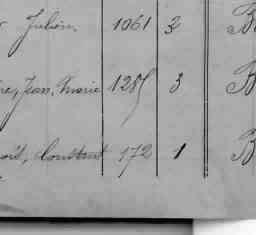 Julien. 1061 3 B
Jean, Marie 1285 3 B
Constant 172 1 B